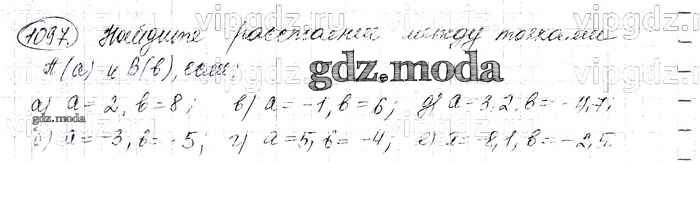 1097. Найдите расстояние между точками
A(a) и B(b), если:
gdz.moda
а) a = 2, b = 8; в) a = -1, b = 6; д) a = 3,2, b = -4,7;
gdz.moda
б) a = -3, b = -5; г) a = 5, b = -4; е) a = -8,1, b = -2,5.